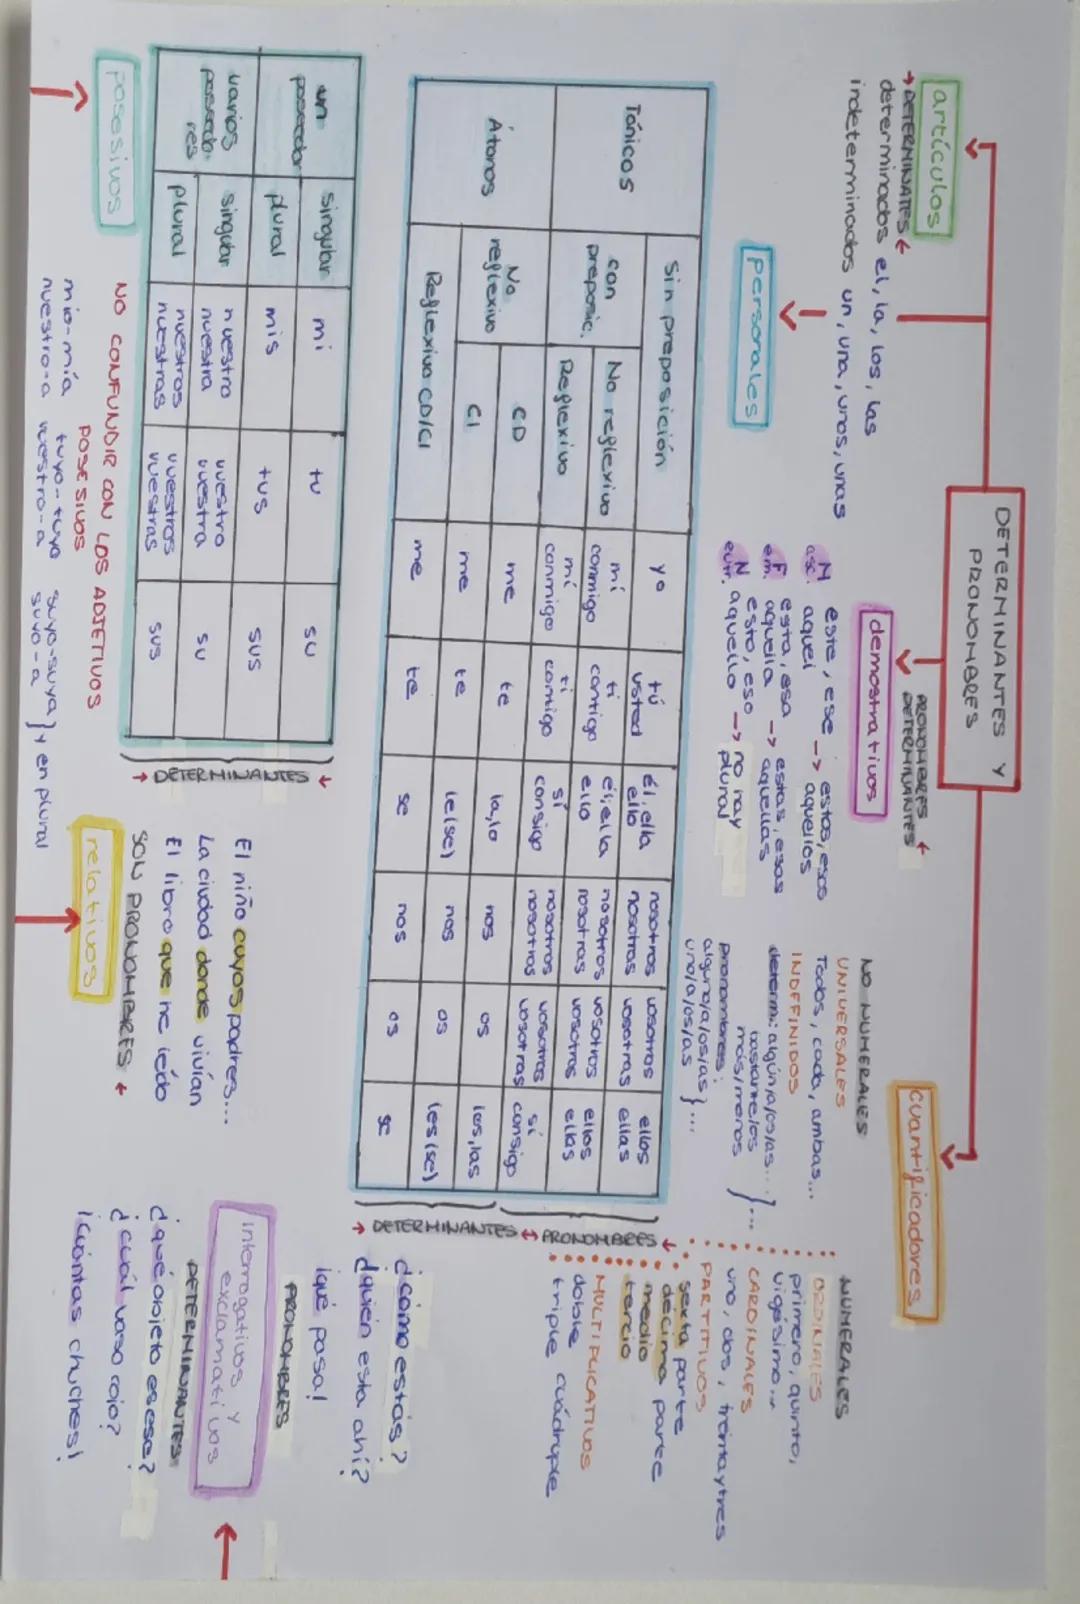 DETERMINANTES Y
PRONOMBRES
artículos
→ DETERMINATES ←
determinados el, la, los, las
indeterminados un, una, unos, unas
PRONOMBRES ←
DETERMINANTES
demostrativos
Masc. este, ese → estos, esos
aquel aquellos
Fem. esta, esa → estas, esas
aquella aquellas
Neutr. esto, eso → no hay
aquello plural
cuantificadores
NO NUMERALES
UNIVERSALES
Todos, cada, ambas...
INDEFINIDOS
determi: algún/a/os/as...
bastante/es
más/menos } ...
pronombres:
alguno/a/os/as } ...
uno/a/os/as
NUMERALES
ORDINALES
primero, quinto,
vigésimo...
CARDINALES
uno, dos, treinta y tres
PARTITIVOS
sexta parte
décima parte
medio
tercio
MULTIPLICATIVOS
doble
triple cuádruple
personales
Tónicos
Sin preposición yo tú usted él, ella ello nosotros nosotras vosotros vosotras ellos ellas
con preposic.
No reflexivo mí conmigo ti contigo él, ella ello nosotros nosotras vosotros vosotras ellos ellas
Reflexivo mí conmigo ti contigo sí consigo nosotros nosotras vosotros vosotras sí consigo
Átonos
No reflexivo
CD me te la, lo nos os los, las
CI me te le(se) nos os les(se)
Reflexivo CD/CI me te se nos os se
→ DETERMINANTES ↔ PRONOMBRES ←
un poseedor
singular mi tu su
plural mis tus sus
varios poseedores
singular nuestro nuestra vuestro vuestra su
plural nuestros nuestras vuestros vuestras sus
→ DETERMINANTES ←
posesivos
NO CONFUNDIR CON LOS ADJETIVOS
POSESIVOS
mio-mía tuyo-tuya suyo-suya } y en plural
nuestro-a vuestro-a suyo-a
El niño cuyos padres...
La ciudad donde vivían
El libro que he leído
SON PRONOMBRES ←
relativos
¿cómo estás?
¿quién esta ahí?
¡qué pasa!
PRONOMBRES
interrogativos y
exclamativos
DETERMINANTES
¿qué objeto es ese?
¿cuál vaso rojo?
¡cuántas chuches!